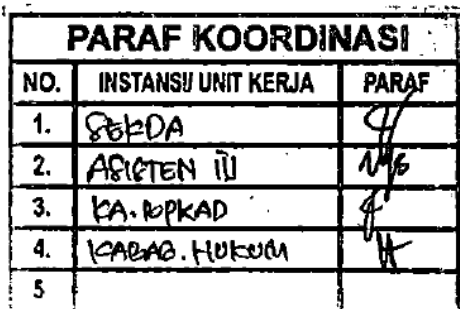 PARAF KOORDINASI
NO. INSTANSI/ UNIT KERJA PARAF
1. SEKDA
2. ASISTEN III
3. KA.
4. KABAG. HUKUM
5